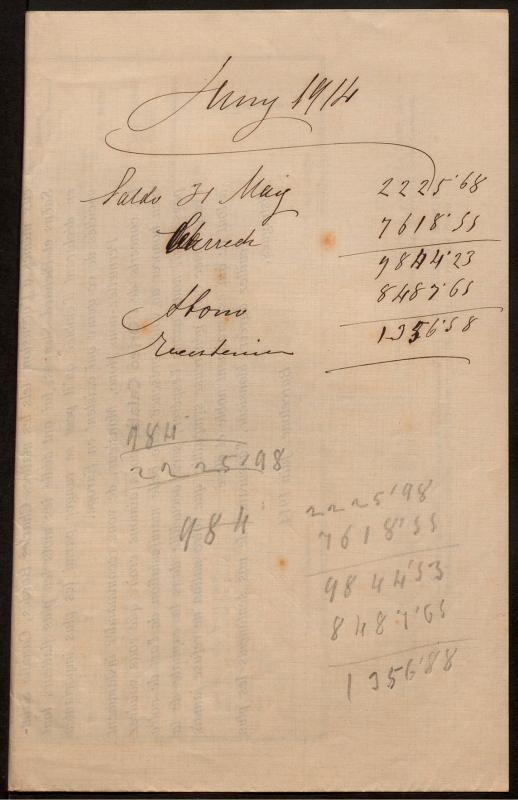 Juny 1914
Saldo 31 Maig 2225'68
Cárrech 7618'55
9844'23
Abono 8487'65
Existencia 1356'58
984
2225'98
984
2225'98
7618'55
9844'53
8487'65
1356'88